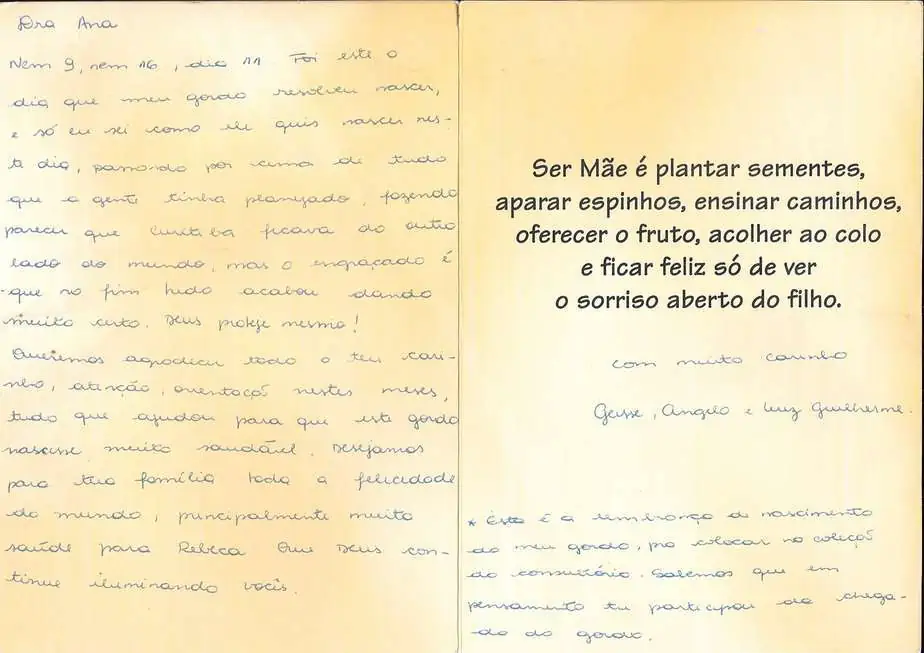 Dra Ana
Nem 9, nem 16, dia 11. Foi este o
dia que meu gordo resolveu nascer,
e só eu sei como ele quis nascer nes-
te dia, passando por cima de tudo
que a gente tinha planejado, fazendo
parecer que Curitiba ficava do outro
lado do mundo, mas o engraçado é
que no fim tudo acabou dando
muito certo. Deus protege mesmo!
Queremos agradecer todo o teu cari-
nho, atenção, orientação nestes meses,
tudo que ajudou para que este gordo
nascesse muito saudável. Desejamos
para tua família toda a felicidade
do mundo, principalmente muita
saúde para Rebeca. Que Deus con-
tinue iluminando vocês.
Ser Mãe é plantar sementes,
aparar espinhos, ensinar caminhos,
oferecer o fruto, acolher ao colo
e ficar feliz só de ver
o sorriso aberto do filho.
com muito carinho
Geisse, Angelo e Luiz Guilherme.
* Esta é a lembrança de nascimento
do meu gordo, pra colocar na coleção
do consultório. Sabemos que em
pensamento tu participou da chega-
da do gordo.